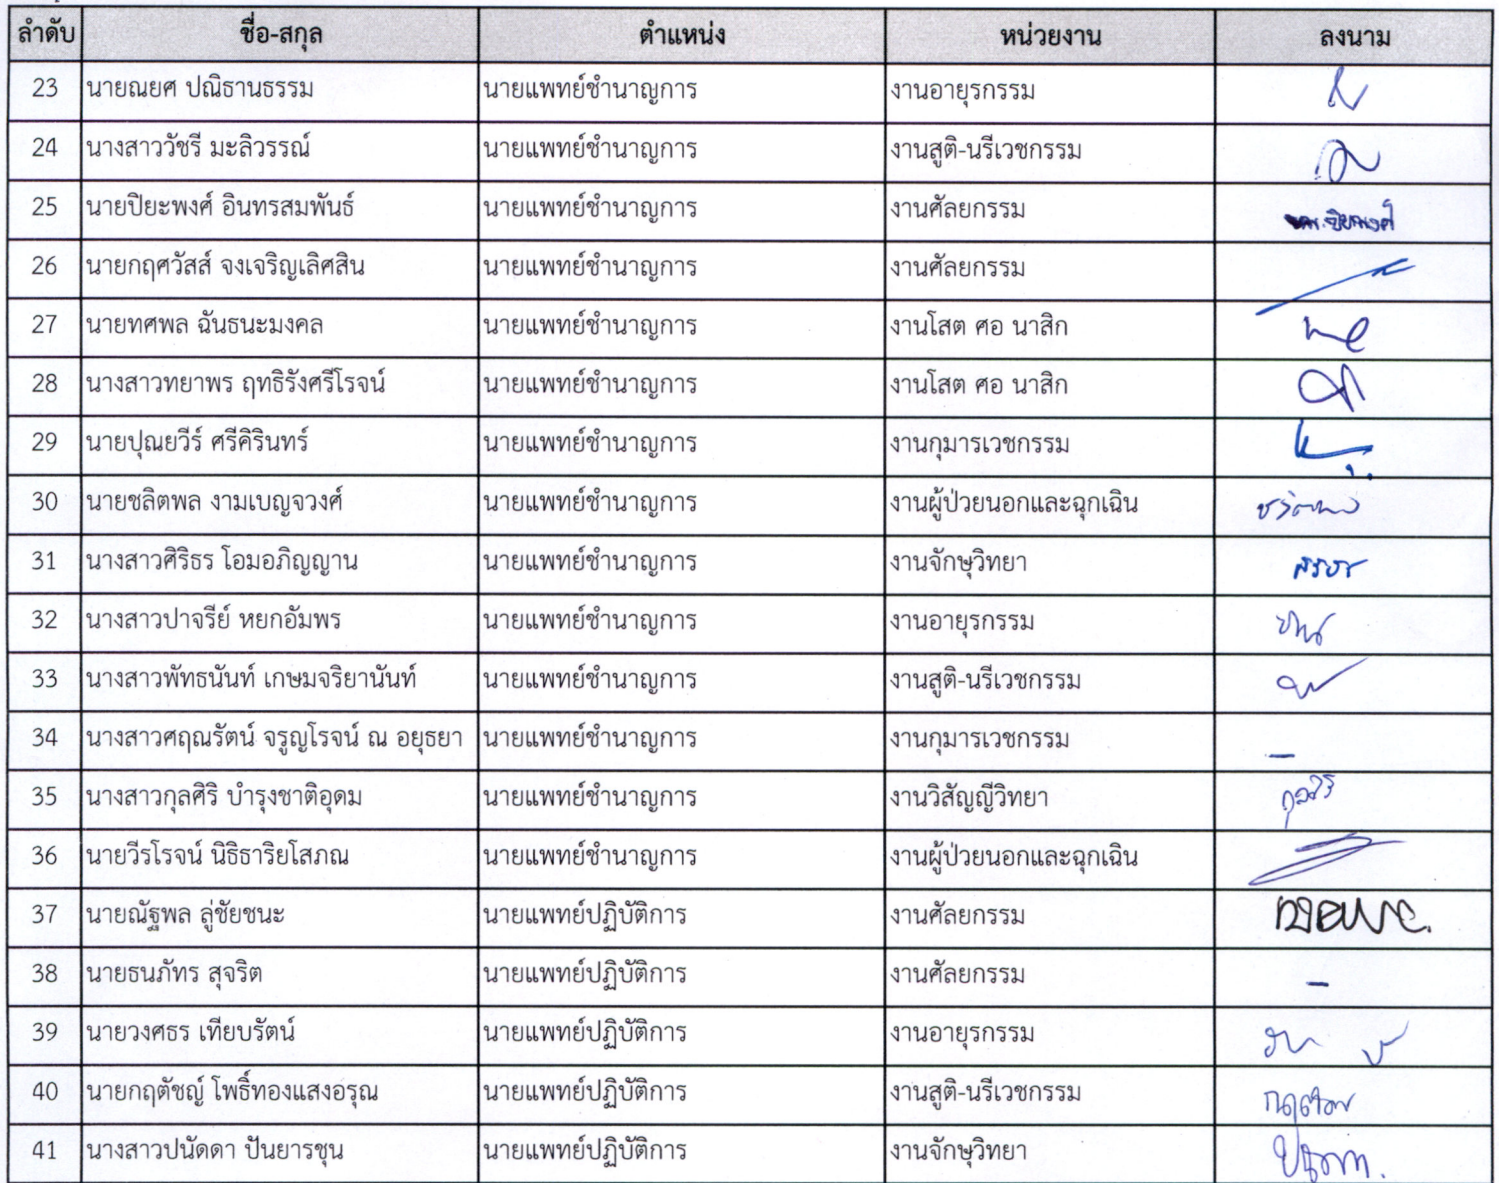 ลำดับ ชื่อ-สกุล ตำแหน่ง หน่วยงาน ลงนาม
23 นายณยศ ปณิธานธรรม นายแพทย์ชำนาญการ งานอายุรกรรม
24 นางสาววัชรี มะลิวรรณ์ นายแพทย์ชำนาญการ งานสูติ-นรีเวชกรรม
25 นายปิยะพงศ์ อินทรสมพันธ์ นายแพทย์ชำนาญการ งานศัลยกรรม
26 นายกฤศวัสส์ จงเจริญเลิศสิน นายแพทย์ชำนาญการ งานศัลยกรรม
27 นายทศพล ฉันธนะมงคล นายแพทย์ชำนาญการ งานโสต ศอ นาสิก
28 นางสาวทยาพร ฤทธิรังศรีโรจน์ นายแพทย์ชำนาญการ งานโสต ศอ นาสิก
29 นายปุณยวีร์ ศรีคิรินทร์ นายแพทย์ชำนาญการ งานกุมารเวชกรรม
30 นายชลิตพล งามเบญจวงศ์ นายแพทย์ชำนาญการ งานผู้ป่วยนอกและฉุกเฉิน
31 นางสาวศิริธร โอมอภิญญาน นายแพทย์ชำนาญการ งานจักษุวิทยา
32 นางสาวปาจรีย์ หยกอัมพร นายแพทย์ชำนาญการ งานอายุรกรรม
33 นางสาวพัทธนันท์ เกษมจริยานันท์ นายแพทย์ชำนาญการ งานสูติ-นรีเวชกรรม
34 นางสาวศฤณรัตน์ จรูญโรจน์ ณ อยุธยา นายแพทย์ชำนาญการ งานกุมารเวชกรรม -
35 นางสาวกุลศิริ บำรุงชาติอุดม นายแพทย์ชำนาญการ งานวิสัญญีวิทยา กุลศิริ
36 นายวีรโรจน์ นิธิธาริยโสภณ นายแพทย์ชำนาญการ งานผู้ป่วยนอกและฉุกเฉิน
37 นายณัฐพล ลู่ชัยชนะ นายแพทย์ปฏิบัติการ งานศัลยกรรม
38 นายธนภัทร สุจริต นายแพทย์ปฏิบัติการ งานศัลยกรรม -
39 นายวงศธร เทียบรัตน์ นายแพทย์ปฏิบัติการ งานอายุรกรรม
40 นายกฤตัชญ์ โพธิ์ทองแสงอรุณ นายแพทย์ปฏิบัติการ งานสูติ-นรีเวชกรรม
41 นางสาวปนัดดา ปันยารชุน นายแพทย์ปฏิบัติการ งานจักษุวิทยา